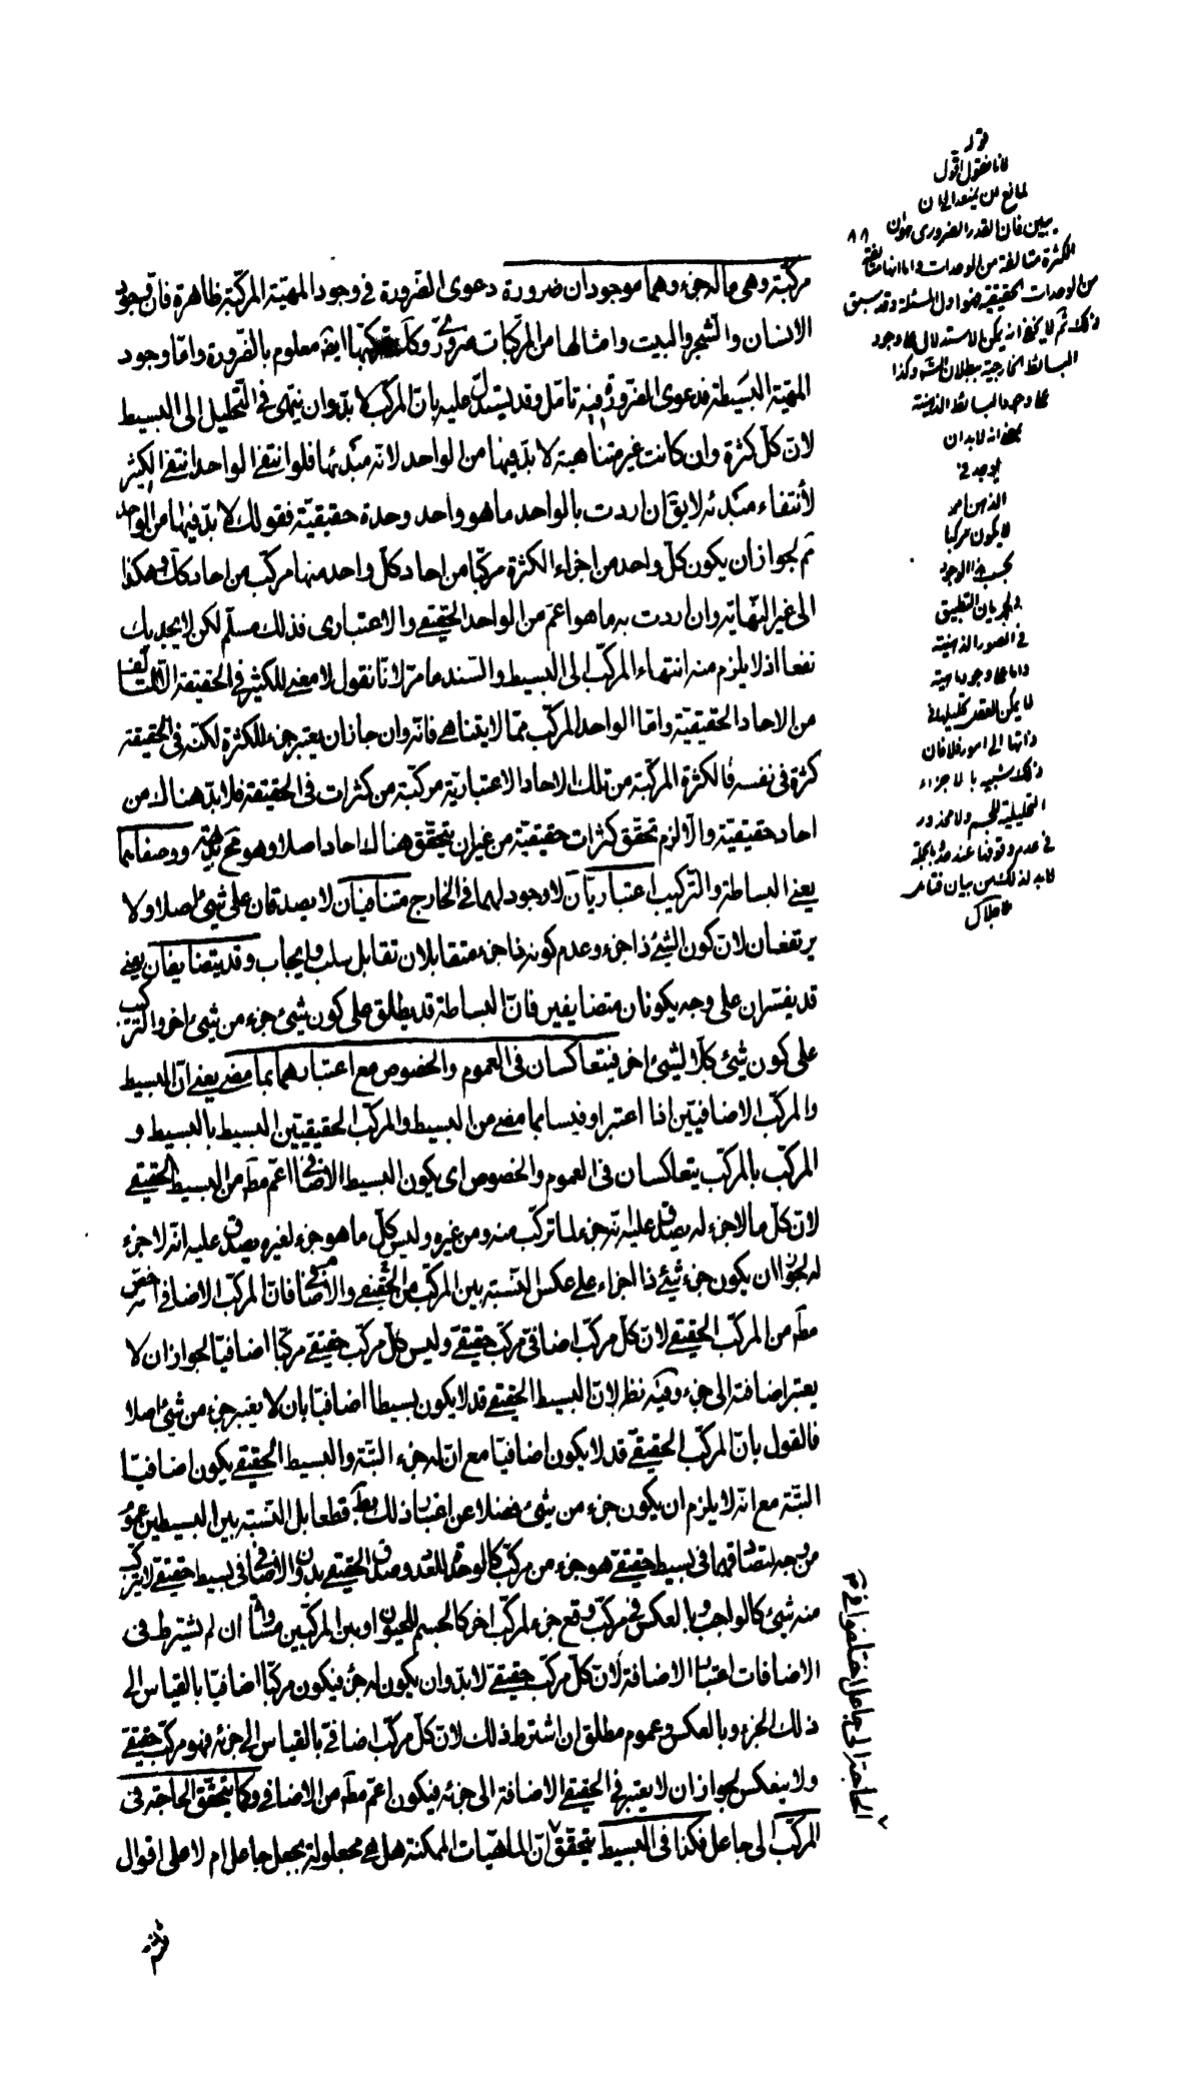 مركّبة وهى ماله جزء وهما موجودان ضرورة دعوى الضرورة فى وجود المهيّة المركّبة ظاهرة فان وجود
الانسان والشجر والبيت وامثالها من المركبات ضرورىّ وكذا تركّبها ايضا معلوم بالضرورة وامّا وجود
المهيّة البسيطة فدعوى الضرورة فيه تامّل وقد يستدلّ عليه بانّ المركّب لا بدّ وان ينتهى فى التحليل الى البسيط
لانّ كلّ كثرة وان كانت غير متناهية لا بدّ فيها من الواحد لانّه مبدئها فلو انتفى الواحد انتفى الكثير
لأنتفاء مبدئه لا يقال ان اردت بالواحد ما هو واحد وحدة حقيقيّة فقولك لا بدّ فيها من الواحد
تم لجواز ان يكون كلّ واحد من اجزاء الكثرة مركّبا من احاد كلّ واحد منها مركّب من احاد كك وهكذا
الى غير النّهاية وان اردت به ما هو اعمّ من الواحد الحقيقى والاعتبارى فذلك مسلّم لكن لا يجديك
نفعا اذ لا يلزم منه انتهاء المركّب الى البسيط والسند ما مرّ لانّا نقول لا معنى للكثير فى الحقيقة الّا المتالف
من الاحاد الحقيقيّة وامّا الواحد المركّب ممّا لا يتناهى فانّه وان جاز ان يعتبر جزء للكثرة لكنّه فى الحقيقة
كثرة فى نفسه فالكثرة المركّبة من تلك الاحاد الاعتباريّة مركّبة من كثرات فى الحقيقة فلا بدّ هناك من
احاد حقيقيّة والّا لزم تحقق كثرات حقيقيّة من غير ان يتحقّق هناك احاد اصلا وهو مح بديهة ووصفاهما
يعنى البساطة والتركيب اعتباريّان لا وجود لهما فى الخارج متنافيان لا يصدقان على شئ اصلا ولا
يرتفعان لانّ كون الشئ ذا جزء وعدم كونه ذا جزء متقابلان تقابل سلب وايجاب وقد يتضايفان يعنى
قد يفسّران على وجه يكونان متضايفين فانّ البساطة قد يطلق على كون شئ جزء من شئ اخر والتركيب
على كون شئ كلّا لشئ اخر فيتعاكسان فى العموم والخصوص مع اعتبارهما بما مضى يعنى انّ البسيط
والمركّب الاضافيّين اذا اعتبرا وقيسا بما مضى من البسيط والمركّب الحقيقيّين البسيط بالبسيط و
المركّب بالمركّب يتعاكسان فى العموم والخصوص اى يكون البسيط الاضافى اعمّ مط من البسيط الحقيقى
لانّ كلّ ما لا جزء له يصدق عليه انّه جزء لما تركّب منه ومن غيره وليس كلّ ما هو جزء لغيره يصدق عليه انّه لا جزء
له لجواز ان يكون جزء شئ ذا اجزاء على عكس النّسبة بين المركّب من الحقيقى والاضافى فانّ المركّب الاضافى اخصّ
مط من المركّب الحقيقى لانّ كلّ مركّب اضافىّ مركّب حقيقىّ وليس كلّ مركّب حقيقى مركّبا اضافيّا لجواز ان لا
يعتبر اضافته الى جزء وفيه نظر لانّ البسيط الحقيقى قد لا يكون بسيطا اضافيّا بان لا يعتبر جزء من شئ اصلا
فالقول بانّ المركّب الحقيقىّ قد لا يكون اضافيّا مع انّ له جزء البتّة والبسيط الحقيقى يكون اضافيّا
البتّة مع انّه لا يلزم ان يكون جزء من شئ فضلا عن اعتبار ذلك قطعا بل النّسبة بين البسيطين عموم
من وجه لتصادقهما فى بسيط حقيقى هو جزء من مركّب كالوحدة للعدد وصدق الحقيقى بدون الاضافى فى بسيط حقيقى لا يتركّب
منه شئ كالواجب وبالعكس فى مركّب وقع جزء لمركّب اخر كالجسم للحيوان وبين المركّبين مساواة ان لم يشترط فى
الاضافات اعتبار الاضافة لانّ كلّ مركّب حقيقى لا بدّ وان يكون له جزء فيكون مركّبا اضافيّا بالقياس الى
ذلك الجزء وبالعكس وعموم مطلق ان اشترط ذلك لانّ كلّ مركّب اضافىّ بالقياس الى جزئه فهو مركّب حقيقى
ولا ينعكس لجواز ان لا يعتبر فى الحقيقى الاضافة الى جزئه فيكون اعمّ مط من الاضافى وكما يتحقّق الحاجة فى
المركّب الى جاعل فكذا فى البسيط يتحقق انّ الماهيّات الممكنة هل هى مجعولة بجعل جاعل ام لا على اقوال
قوله
لانا نقول اقول
لمانع من يمنعه الى ان
يبين فان القدر الضرورى هو ان
الكثرة متالفة من الوحدات واما انها متالفة
من الوحدات الحقيقية فهو اول المسئلة وقد سبق
ذلك ثم لا يخفى انه يمكن الاستدلال على وجود
البسائط الخارجية ببطلان التسلسل وكذا
على وجود البسائط الذهنية
بمعنى انه لا بد ان
يوجد فى
الذهن امر
لا يكون مركبا
بحسب هذا الوجود
لجريان التطبيق
فى الصور الذهنية
واما على وجود ماهية
لا يمكن للعقل تحليلها فى
ذاتها الى امور فلا فان
ذلك شبيه بالاجزاء
التحليلية للجسم ولا محذور
فى عدم وقوفها عند حد بالجملة
لا بد لذلك من بيان فتامل
٨٨
الحاجة الى جاعل اختلفوا فى